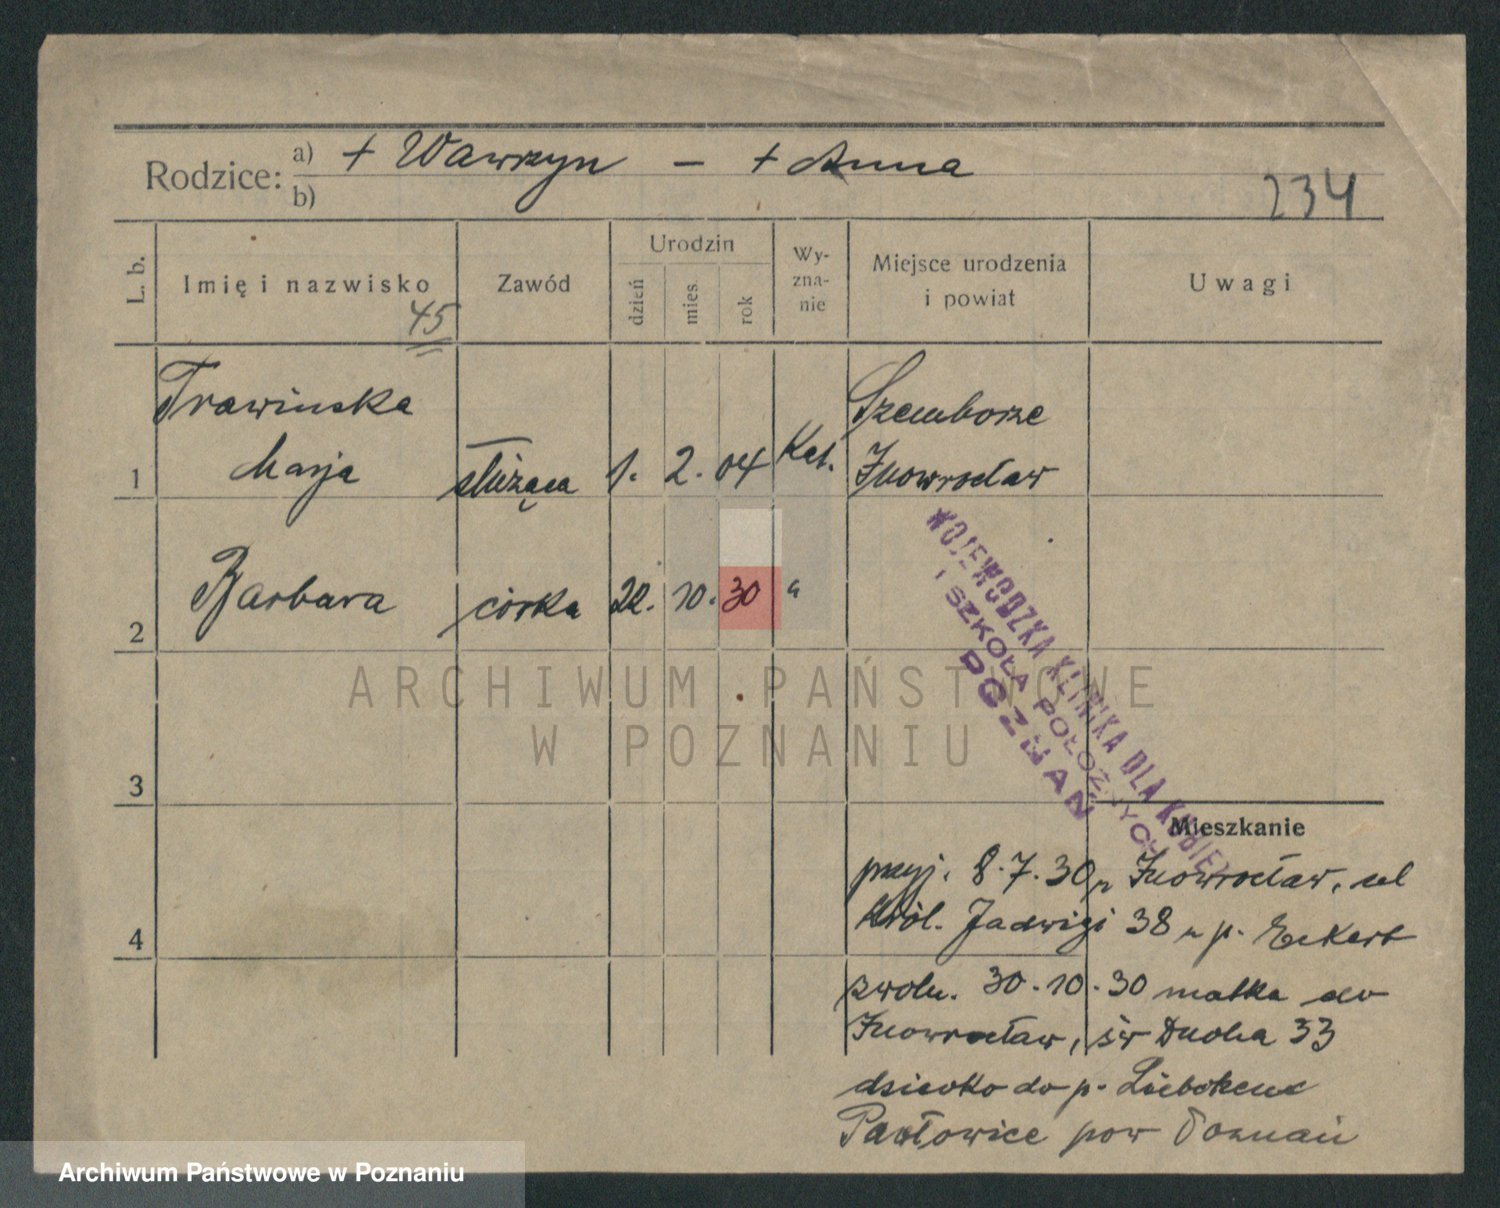 Rodzice: a) + Wawrzyn – + Anna
b)
234
L. b.
Imię i nazwisko
45
Zawód
Urodzin
dzień
mies.
rok
Wy-
zna-
nie
Miejsce urodzenia
i powiat
Uwagi
Trawinska
Marja
1
służąca
1. 2. 04
Kat.
Szemborze
Inowrocław
Barbara
2
córka
22. 10. 30
"
WOJEWÓDZKA KLINIKA DLA KOBIET
I SZKOŁA POŁOŻNYCH
POZNAŃ
ARCHIWUM PAŃSTWOWE
W POZNANIU
3
Mieszkanie
przyj. 8.7.30 z Inowrocław, ul
4
Król. Jadwigi 38 u p. Eckert
zwoln. 30.10.30 matka do
Inowrocław, św Ducha 33
dziecko do p.
pow Poznań
Archiwum Państwowe w Poznaniu